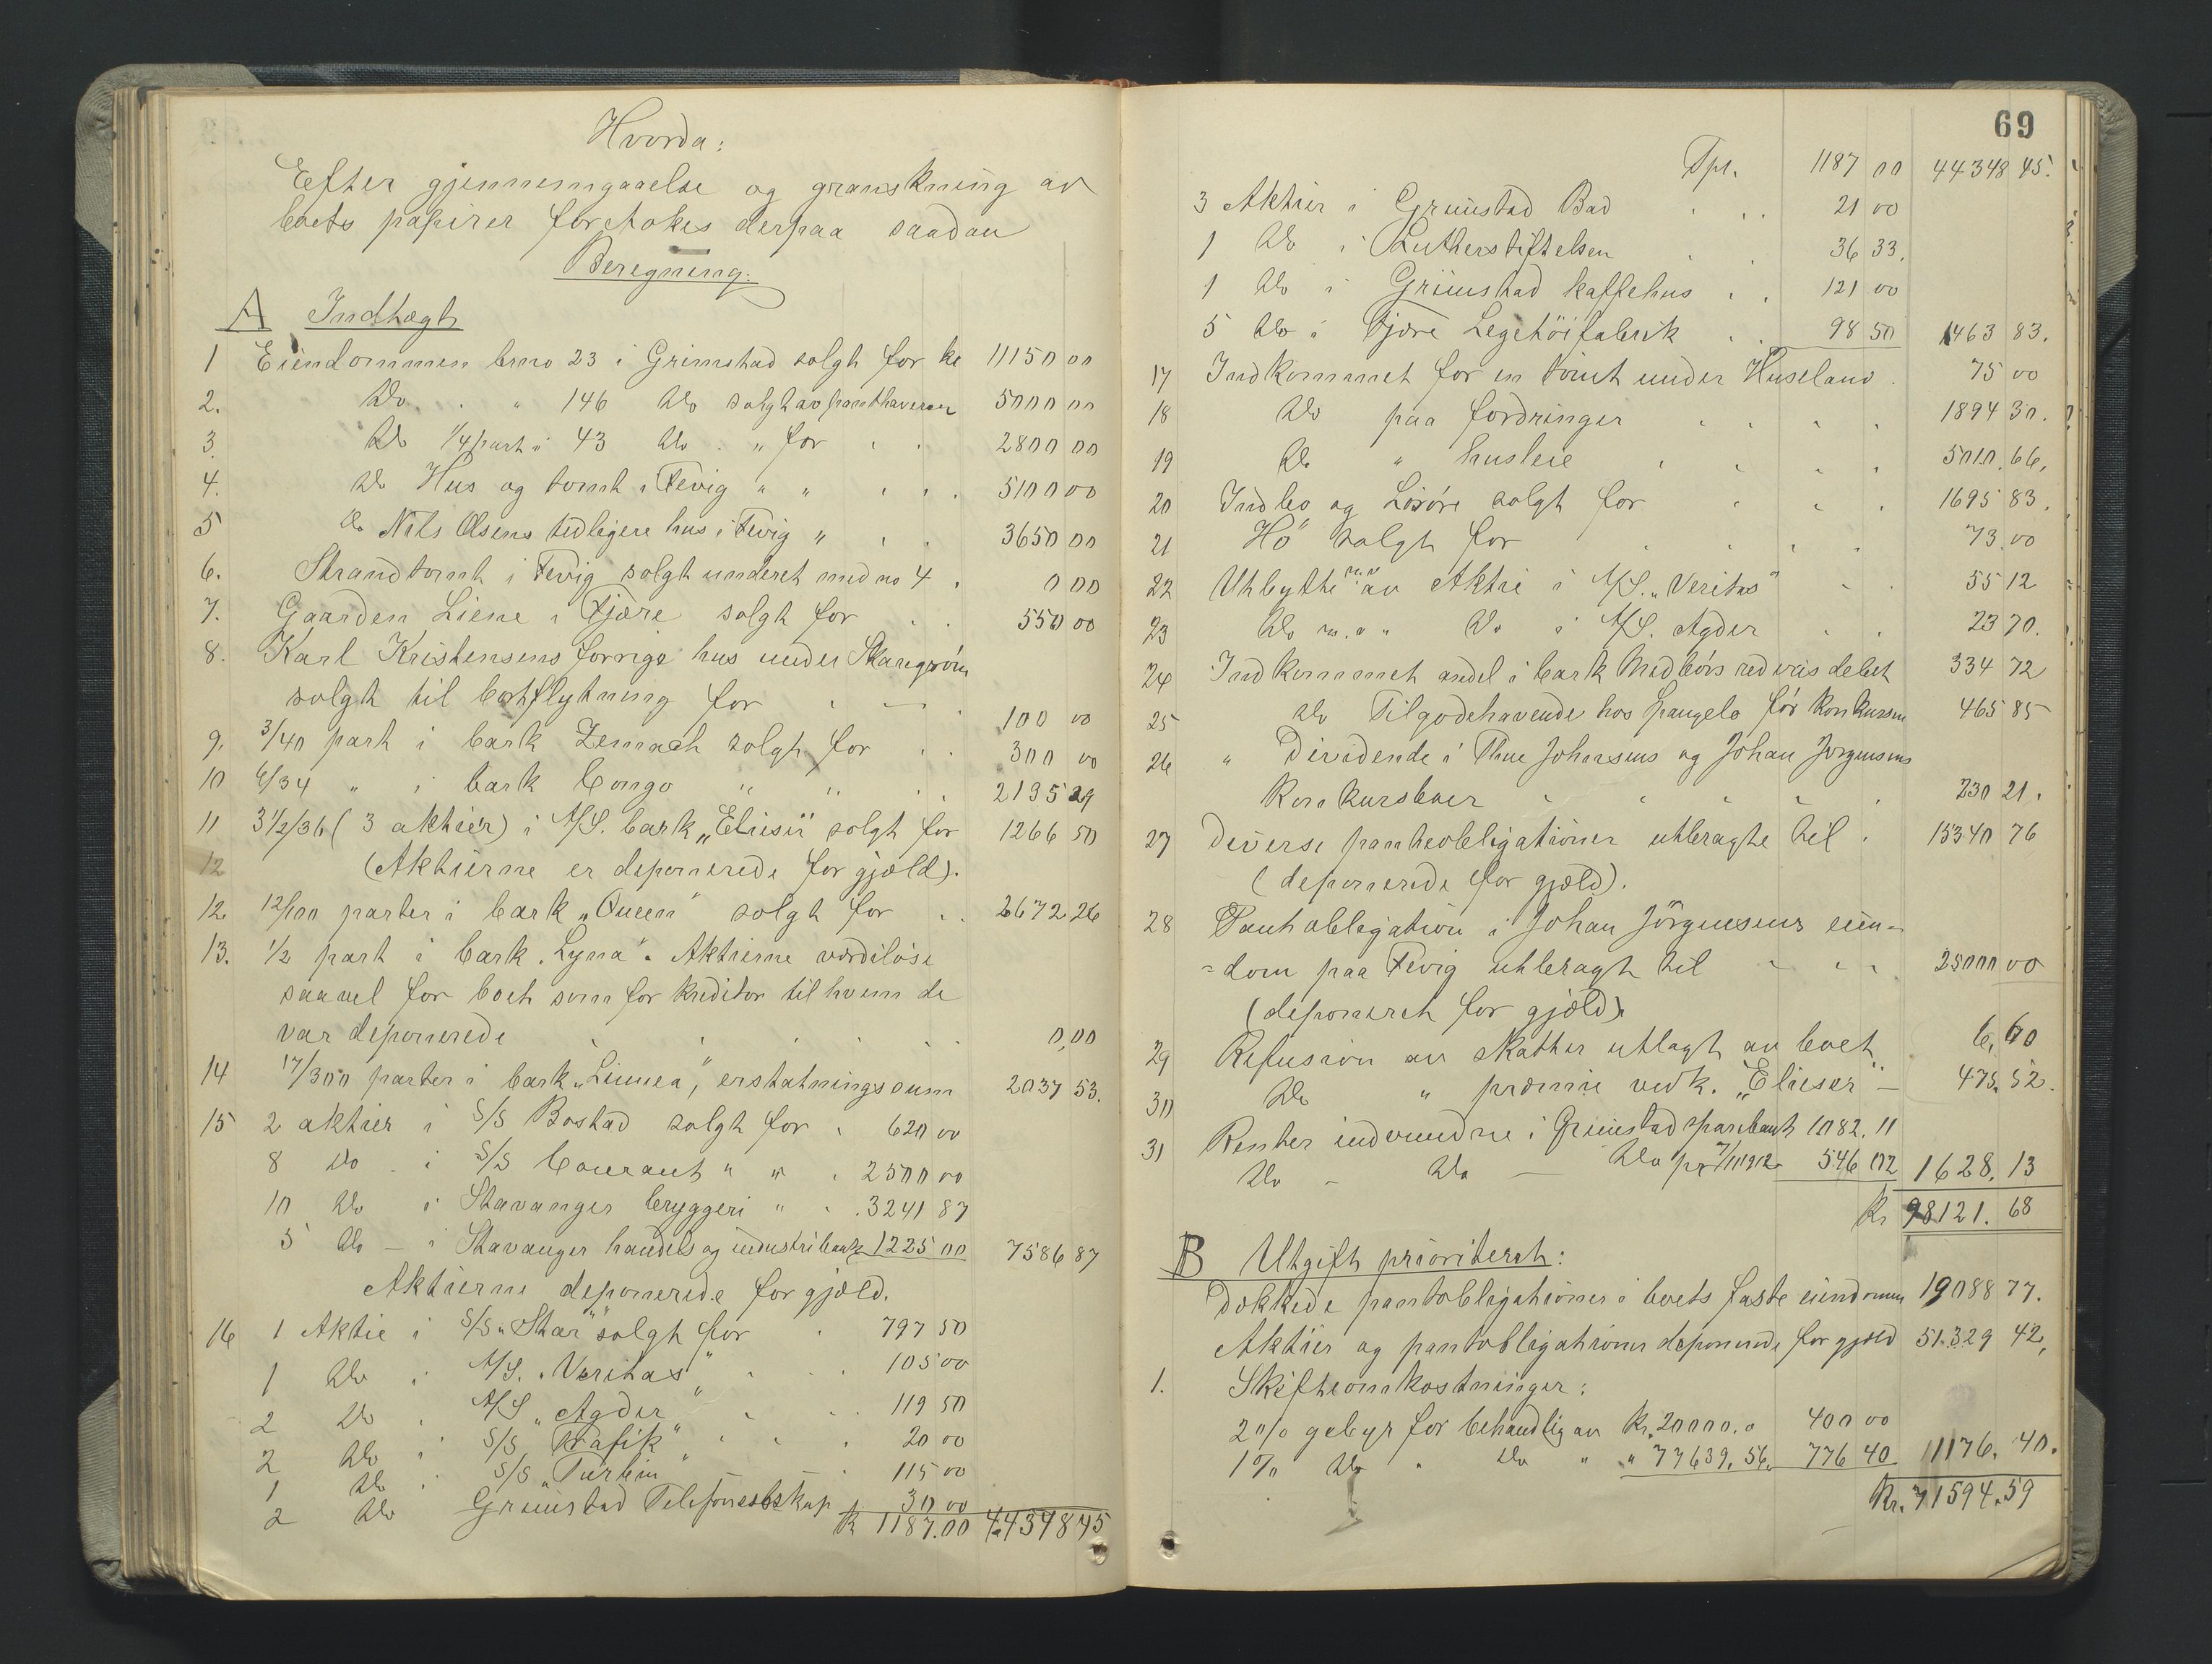 Hvorda:
Efter gjennemgaaelse og granskning av
boets papirer foretokes derpaa saadan
Beregning.
A Indtægt
1 Eiendommen brno 23 i Grimstad solgt for kr 11150 00
2. Do. " 146 do solgt av panthaveren 5000 00
3. do 1/4 part i 43 do " for 2800 00
4. do Hus og tomt i Fevig " " 5100 00
5 do Nils Olsens tidligere hus i Fevig " 3650 00
6. Strandtomt i Fevig solgt underet med no 4. 0 00
7. Gaarden Liene i Fjære solgt for 550 00
8. Karl Kristensens forrige hus under
solgt til bortflytning for 100 00
9. 3/40 part i bark Zemach solgt for 300 00
10 6/34 " i bark Congo " " 2135 29
11 3 1/2/36 (3 aktier) i A/S. bark "Elieser" solgt for 1266 50
12 (Aktierne er deponerede for gjæld).
12. 12/100 parter i bark "Queen" solgt for 2672 26
13. 1/2 part i bark "Lyna". Aktierne værdiløse
saavel for boet som for kreditor til hvem de
var deponerede 0,00
14 17/300 parter i bark "Linnea", erstatningssum 2037 53.
15 2 aktier i S/S Bostad solgt for 620 00
8 do i S/S Courant " " 2500 00
10 do i Stavanger bryggeri " 3241 87
5 do - i Stavanger handels og industribank 1225 00 7586 87
Aktierne deponerede for gjæld.
16 1 Aktie i S/S "Star" solgt for 797 50
1 do i A/S. "Veritas" 105 00
2 do i A/S "Agder" 119 50
2 do i S/S "Trafik" 20 00
1 do i S/S "Turbin" 115 00
2 do Grimstad Telefonselskap 30 00
K 1187.00 44348 45
69
Tpr. 1187 00 44348 45.
3 Aktier i Grimstad Bad 21 00
1 do i Lutherstiftelsen 36 33.
1 do i Grimstad kaffehus 121 00
5 do i Fjære Legetöifabrik 98 50 1463 83.
17 Indkommet for en tomt under Huseland. 75 00
18 do paa fordringer 1894 30.
19 do " husleie 5010. 66,
20 Indbo og Lösöre solgt for 1695 83.
21 Hö solgt for 73 00
22 Utbytte m.v. av Aktie i A/S. "Veritas" 55 12
23 do m.v. " do i A/S. Agder 23 70.
24 Indkommet andel i bark Medbörs rederis debet 334 72
25 do Tilgodehavende hos Spangelo för konkursen 465 85
26 " Dividende i Thue Johnsens og Johan Jørgensens
Konkursboer 230 21.
27 Diverse pantheobligationer utbragte til 15340 76
(deponerede for gjæld).
28 Pantobligation i Johan Jörgensens eien-
=dom paa Fevig utbragt til 25000 00
(deponeret for gjæld).
29 Refusion av skatter utlagt av boet 6, 60
30 do " præmie vedk. "Elieser" - 475. 52.
31 Renter indvundne i Grimstad sparebank 1082. 11
do - do - do pr 7/1 1912 546 02 1628, 13
Kr 98121. 68
B Utgift prioriteret:
Dækkede pantobligationer i boets faste eiendomme 19088 77.
Aktier og pantobligationer deponerede for gjæld 51.329 42,
1. Skifteomkostninger:
2% gebyr for behandlig av Kr. 20000.0 400 00
1% do " do " " 77639. 56. 776 40 1176. 40.
Kr. 71594.59